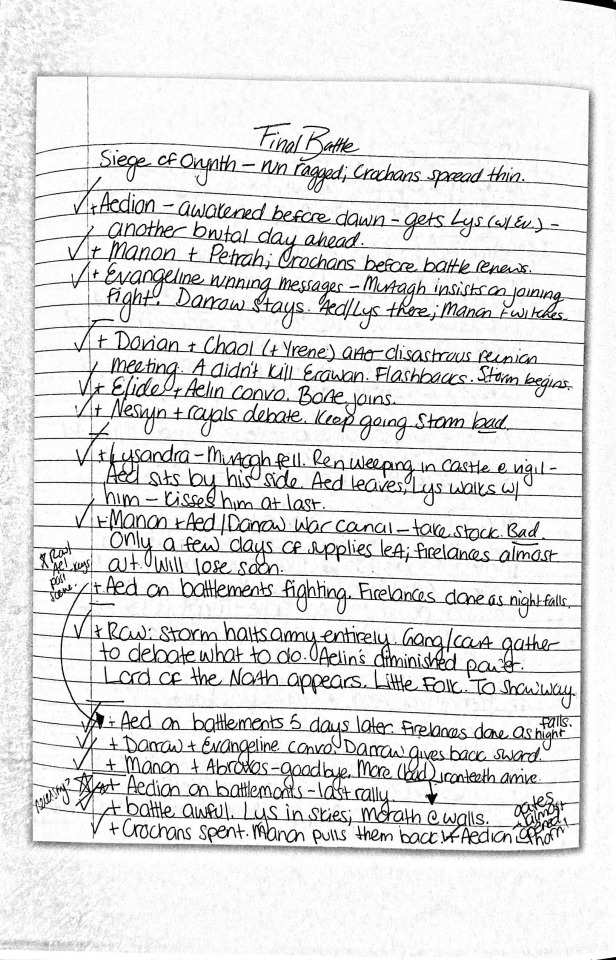 Final Battle
Siege of Orynth – run ragged; Crochans spread thin.
✓ + Aedion – awakened before dawn – gets Lys (w/Ev.) –
another brutal day ahead.
✓ + Manon + Petrah; Crochans before battle renews.
✓ + Evangeline running messages – Murtagh insists on joining
fight. Darrow stays. Aed/Lys there; Manon + witches.
✓ + Dorian + Chaol (+ Yrene) after disastrous reunion
meeting. A didn't kill Erawan. Flashbacks. Storm begins.
✓ + Elide + Aelin convo. Borte joins.
✓ + Nesryn + royals debate. Keep going. Storm bad.
✓ + Lysandra – Murtagh fell. Ren weeping in castle @ vigil –
Aed sits by his side. Aed leaves; Lys walks w/
him – kisses him at last.
✓ + Manon + Aed/Darrow war council – take stock. Bad.
Only a few days of supplies left; firelances almost
out. Will lose soon.
+ Aed on battlements fighting. Firelances done as night falls.
✓ + Row: storm halts army entirely. Gang/court gather
to debate what to do. Aelin's diminished power.
Lord of the North appears. Little Folk. To show way
✓ + Aed on battlements 5 days later. Firelances done as night falls.
✓ + Darrow + Evangeline convo. Darrow gives back sword.
✓ + Manon + Abraxos – goodbye. More (bad) ironteeth arrive
necessary?
+ Aedion on battlements – last rally.
✓ + battle awful. Lys in skies; morath @ walls.
✓ + Crochans spent. Manon pulls them back. Aedion @
gates
almost
opened
thorn!
* Row/
Ael
scene.